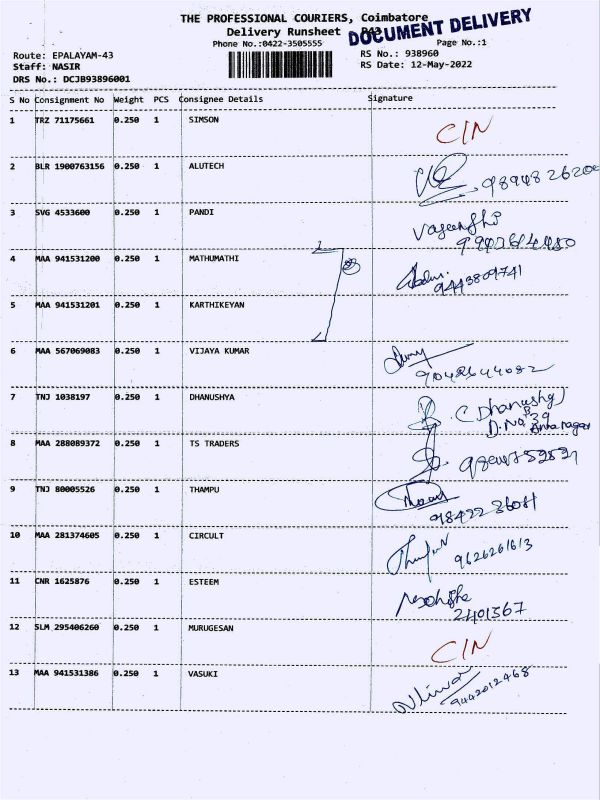 THE PROFESSIONAL COURIERS, Coimbatore
Delivery Runsheet
DOCUMENT DELIVERY
Phone No.:0422-3505555 Page No.:1
Route: EPALAYAM-43 RS No.: 938960
Staff: NASIR RS Date: 12-May-2022
DRS No.: DCJB93896001
S No Consignment No Weight PCS Consignee Details Signature
1 TRZ 71175661 0.250 1 SIMSON CIN
2 BLR 1900763156 0.250 1 ALUTECH
3 SVG 4533600 0.250 1 PANDI
4 MAA 941531200 0.250 1 MATHUMATHI
9443809741
5 MAA 941531201 0.250 1 KARTHIKEYAN
6 MAA 567069083 0.250 1 VIJAYA KUMAR
7 TNJ 1038197 0.250 1 DHANUSHYA C. Dhanushy
D.No 39
Anna nagar
8 MAA 288089372 0.250 1 TS TRADERS
9 TNJ 80005526 0.250 1 THAMPU
98422 36081
10 MAA 281374605 0.250 1 CIRCULT
9626261613
11 CNR 1625876 0.250 1 ESTEEM
2401367
12 SLM 295406260 0.250 1 MURUGESAN CIN
13 MAA 941531386 0.250 1 VASUKI
9442012468